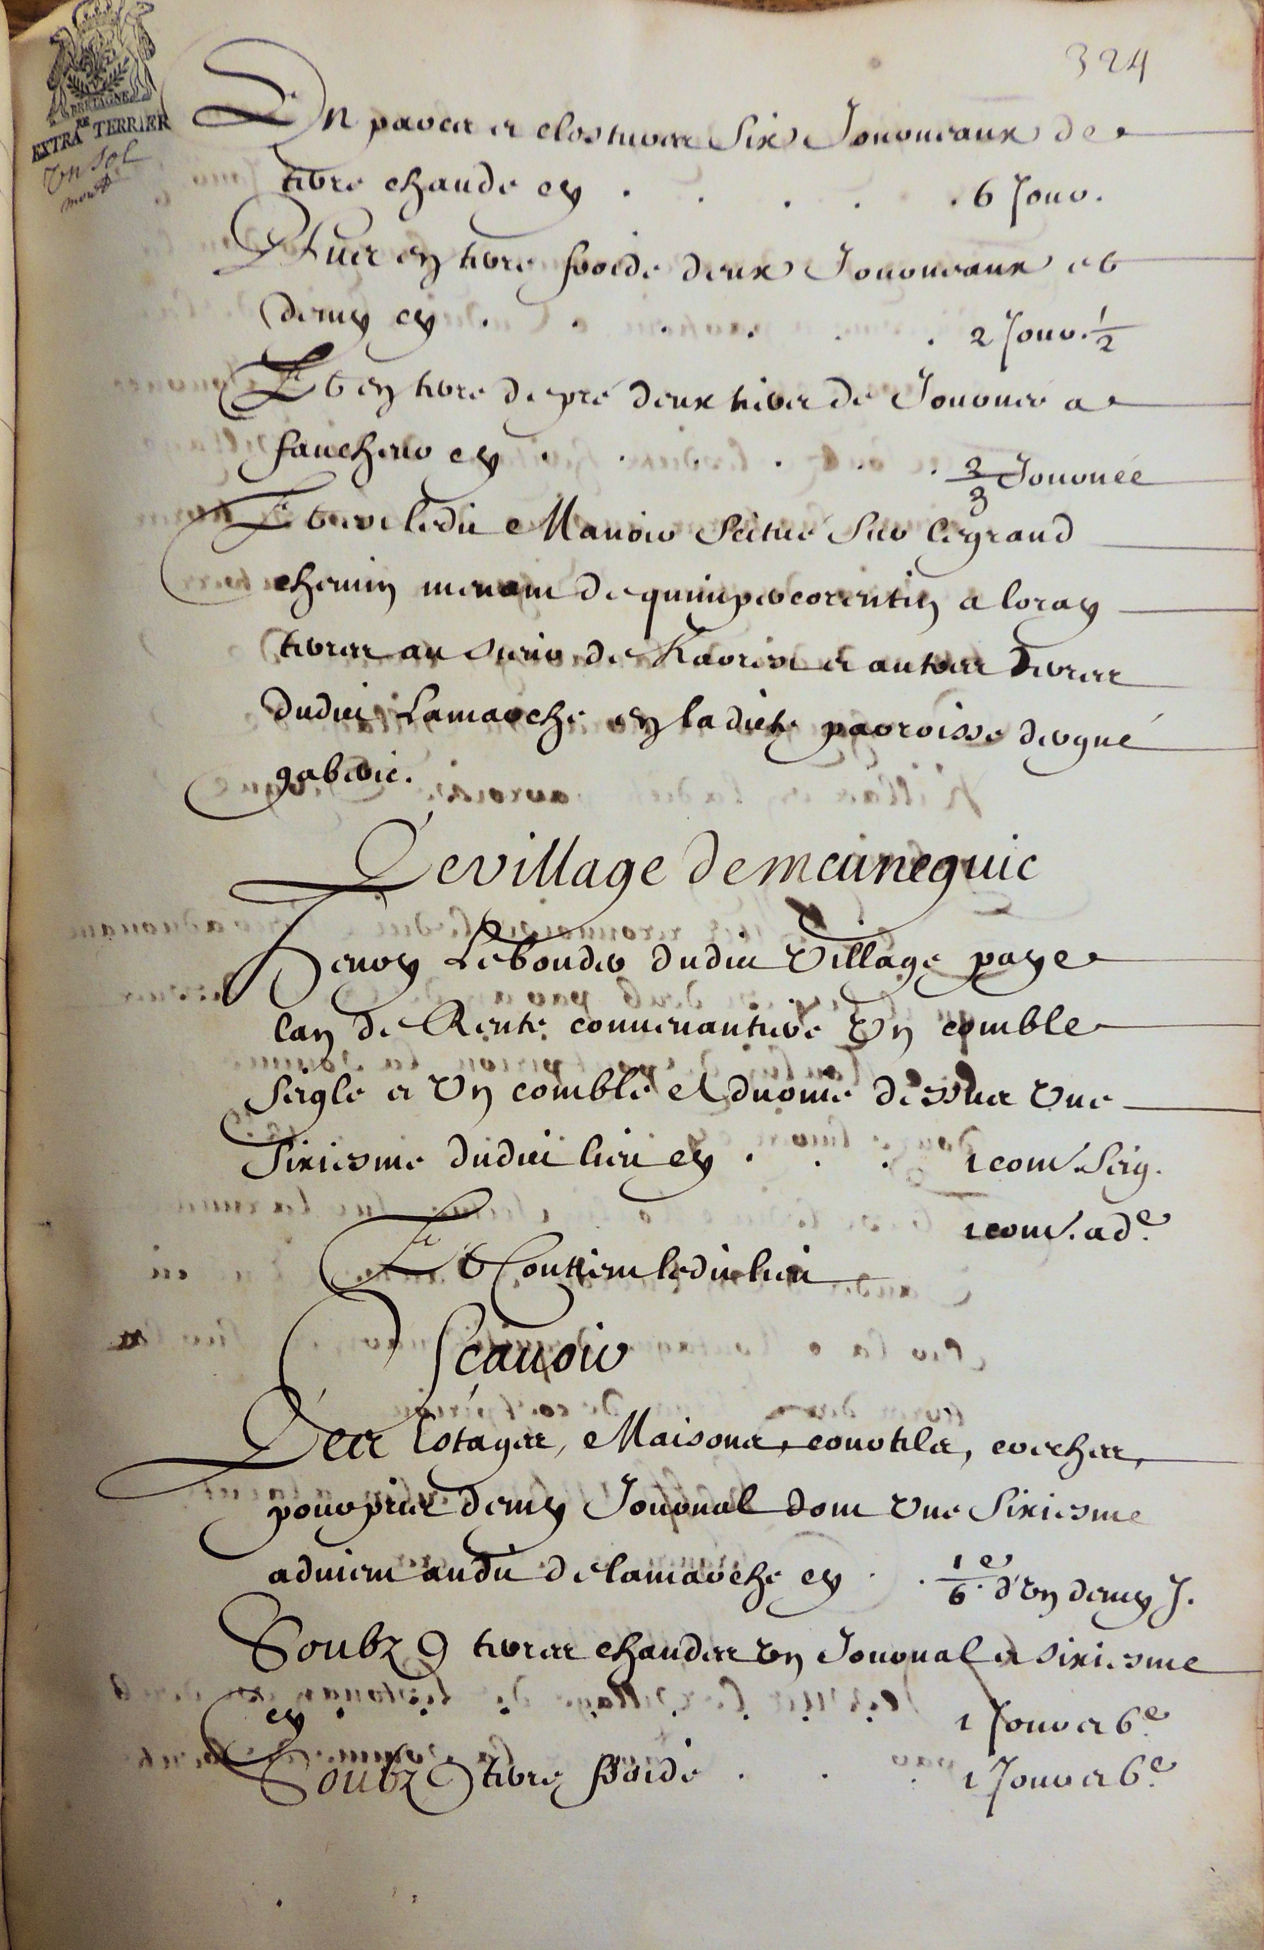 324
BRETAGNE
EXTRA.RE TERRIER
Vn sol
En parcs et closture Six Jourueaux de
terre chaude cy . . . . . 6 Jour.
Plus en terre froide deux Jourueaux et
demy cy . . . . . 2 Jour. 1/2
Et en terre de pré deux tiers de Journée a
faucheur cy . . . . . 2/3 Journée
Et est ledit Manoir Scitué Sur le grand
chemin menant de quimpercorentin a loray
terres au sieur de Kaorien et autres terres
dudit Lamarche en ladicte parroisse dergué
gaberic.
Le village de meünequic
Henry Lebouder dudit Village paye
lan de Rente conuenantiere Vn comble
seigle et Vn comble Aduoine dessus Vne
Sixiesme dudit lieu cy . . . 1 com. Seig.
1 com. ad.e
Et Contient ledit lieu
Scauoir
Les Estages, Maisons, courtils, creches,
pourpris demy Journal dont Vne Sixiesme
advient audit de lamarche cy . . 1.e/6. d'Vn demy J.
Soubz 9 terres chaudes vn Journal et sixiesme
cy . . . . . . 1 Jour et 6.e
Soubz 9 terre froide . . . 1 Jour et 6.e